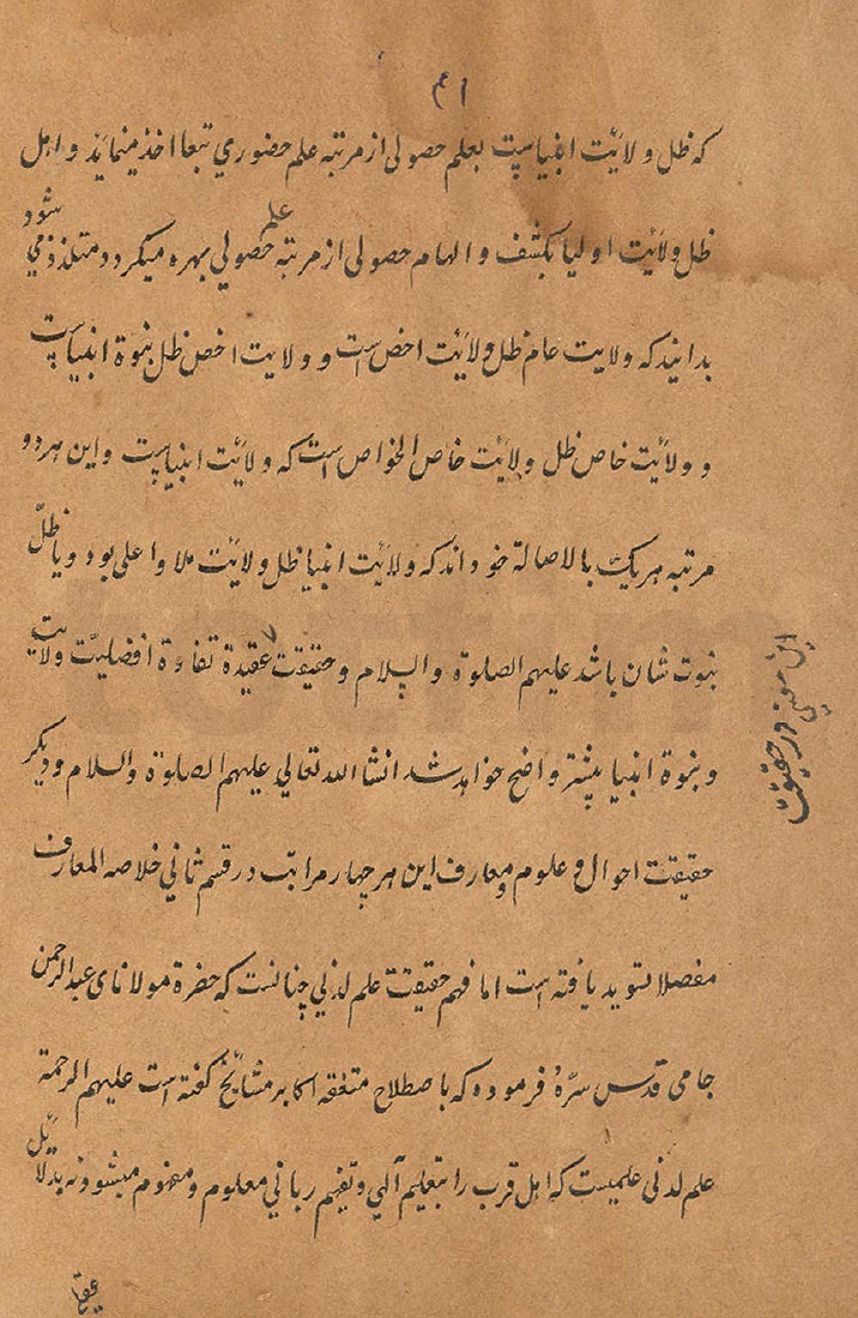 ۴۱
که ظل ولایت انبیاست بعلم حصولی از مرتبه علم حضوري تبعا اخذ مینماید و اهل
ظل ولایت اولیا بکشف و الهام حصولی از مرتبه علم حصولي بهره میکردد متلذذ می شود
بدانید که ولایت عام ظل ولایت اخص است و ولایت اخص ظل نبوة انبیاست
و ولایت خاص ظل ولایت خاص الخواص است که ولایت انبیاست و این هر دو
مرتبه هر یک بالاصالة خود اند که ولایت انبیا ظل ولایت ملاء اعلی بود و یا ظلّ
نبوت شان باشد علیهم الصلوة والسلام و حقیقت عقیدة تفاوة افضلیت ولایت
و نبوة انبیا پیشتر واضح خواهد شد انشاالله تعالي علیهم الصلوة والسلام و دیکر
حقیقت احوال و علوم و معارف این هر چهار مراتب در قسم ثاني خلاصه المعارف
مفصلا تسوید یافته است اما فهم حقیقت علم لدني چنانست که حضرة مولانای عبدالرحمن
جامی قدس سرّهٔ فرموده که باصطلاح متفقه اکابر مشایخ کفته است علیهم الرحمة
علم لدنی علمیست که اهل قرب را بتعلیم آلهي و تفهیم رباني معلوم و مفهوم میشود نه بدلائل
این در حقیقت